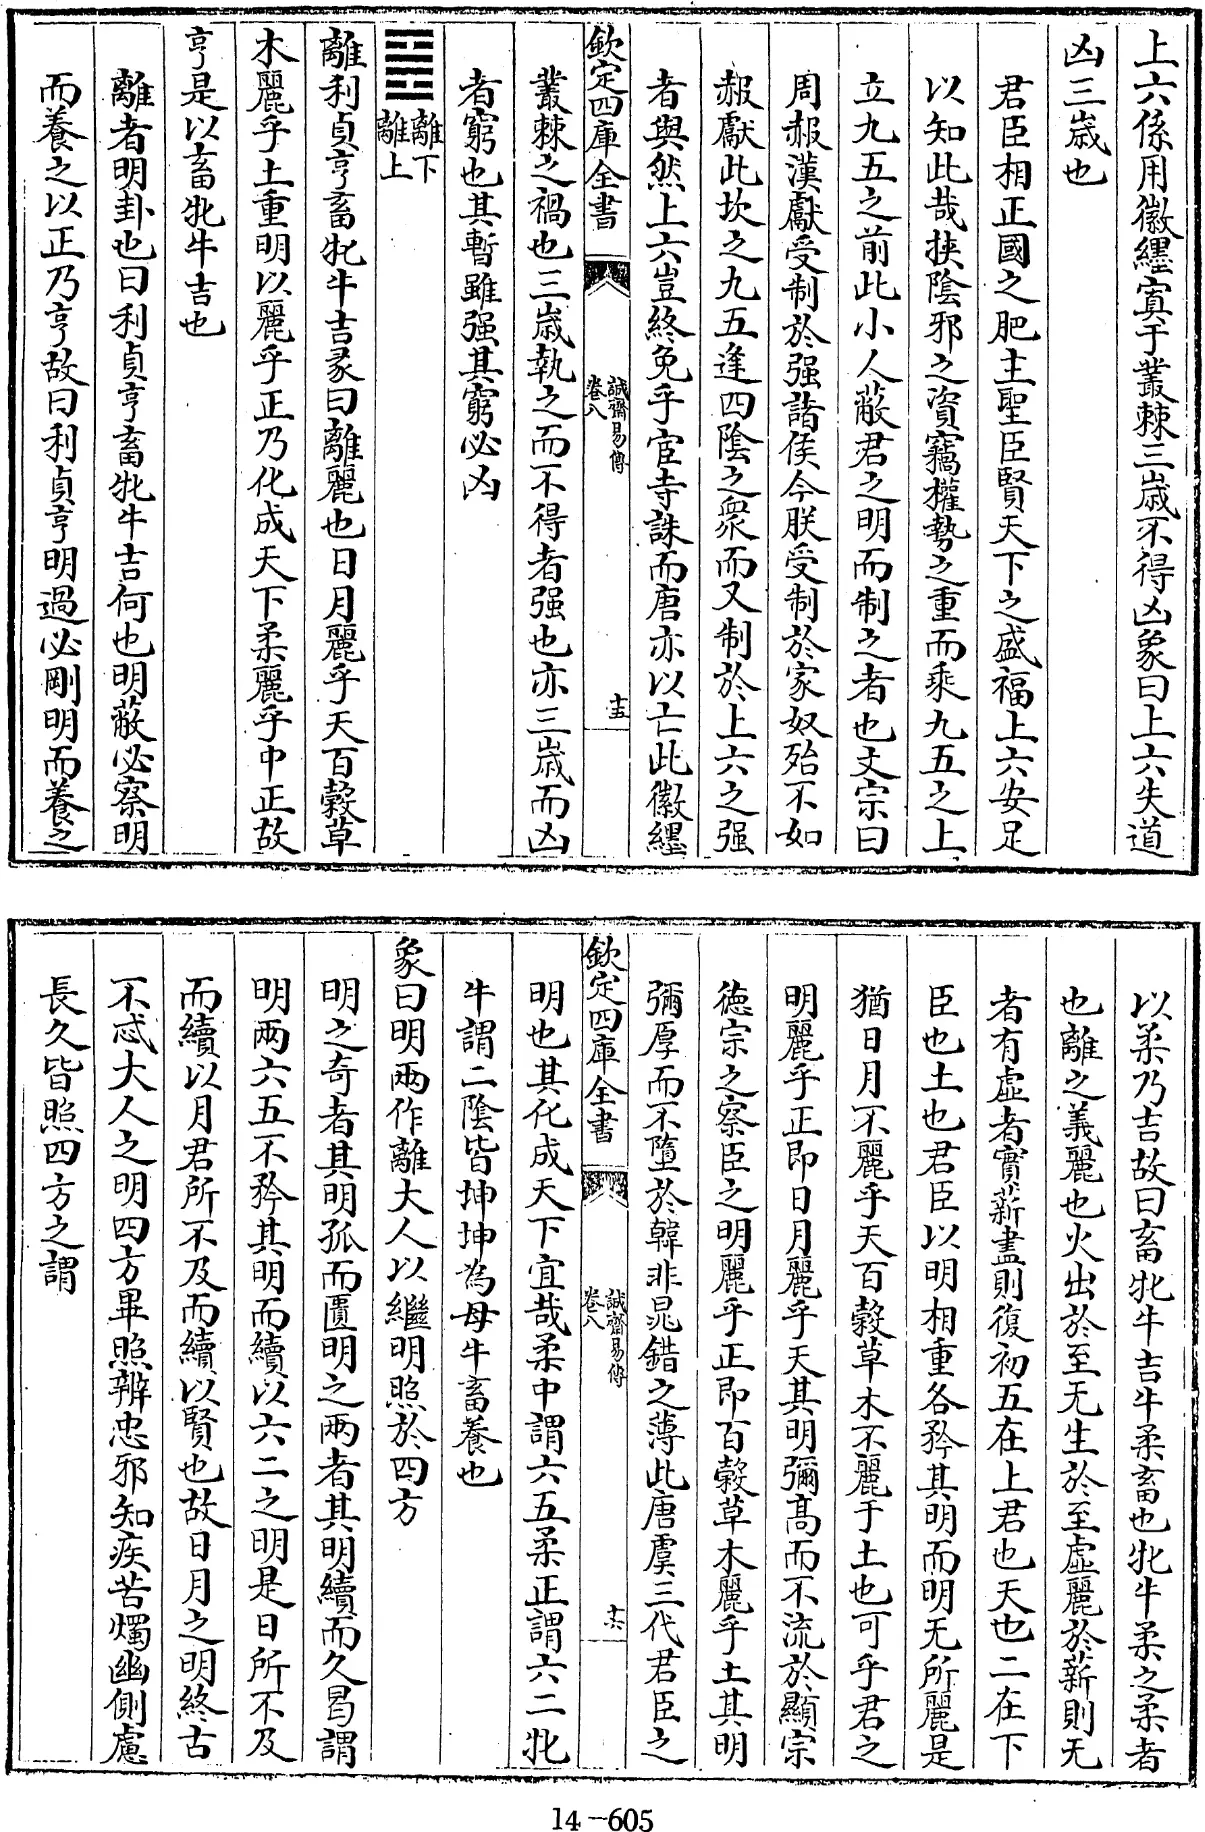 上六係用徽纆寘于叢棘三歳不得凶象曰上六失道
凶三歳也
君臣相正國之肥主聖臣賢天下之盛福上六安足
以知此哉挟陰邪之資竊權勢之重而乘九五之上
立九五之前此小人蔽君之明而制之者也文宗曰
周赧漢獻受制於强諸侯今朕受制於家奴殆不如
赧獻此坎之九五逢四陰之衆而又制於上六之强
者與然上六豈終免乎宦寺誅而唐亦以亡此徽纆
欽定四庫全書
誠齋易傳
卷八
十五
叢棘之禍也三歳執之而不得者强也亦三歳而凶
者窮也其暫雖强其窮必凶
䷝
離下
離上
離利貞亨畜牝牛吉彖曰離麗也日月麗乎天百榖草
木麗乎土重明以麗乎正乃化成天下柔麗乎中正故
亨是以畜牝牛吉也
離者明卦也曰利貞亨畜牝牛吉何也明蔽必察明
而養之以正乃亨故曰利貞亨明過必剛明而養之
以柔乃吉故曰畜牝牛吉牛柔畜也牝牛柔之柔者
也離之義麗也火出於至无生於至虛麗於薪則无
者有虛者實薪盡則復初五在上君也天也二在下
臣也土也君臣以明相重各矜其明而明无所麗是
猶日月不麗乎天百榖草木不麗于土也可乎君之
明麗乎正即日月麗乎天其明彌高而不流於顯宗
德宗之察臣之明麗乎正即百榖草木麗乎土其明
彌厚而不墮於韓非晁錯之薄此唐虞三代君臣之
欽定四庫全書
誠齋易傳
卷八
十六
明也其化成天下宜哉柔中謂六五柔正謂六二牝
牛謂二陰皆坤坤為母牛畜養也
象曰明兩作離大人以繼明照於四方
明之奇者其明孤而匱明之兩者其明續而久曷謂
明兩六五不矜其明而續以六二之明是日所不及
而續以月君所不及而續以賢也故日月之明終古
不忒大人之明四方畢照辨忠邪知疾苦燭幽側慮
長久皆照四方之謂
14-605